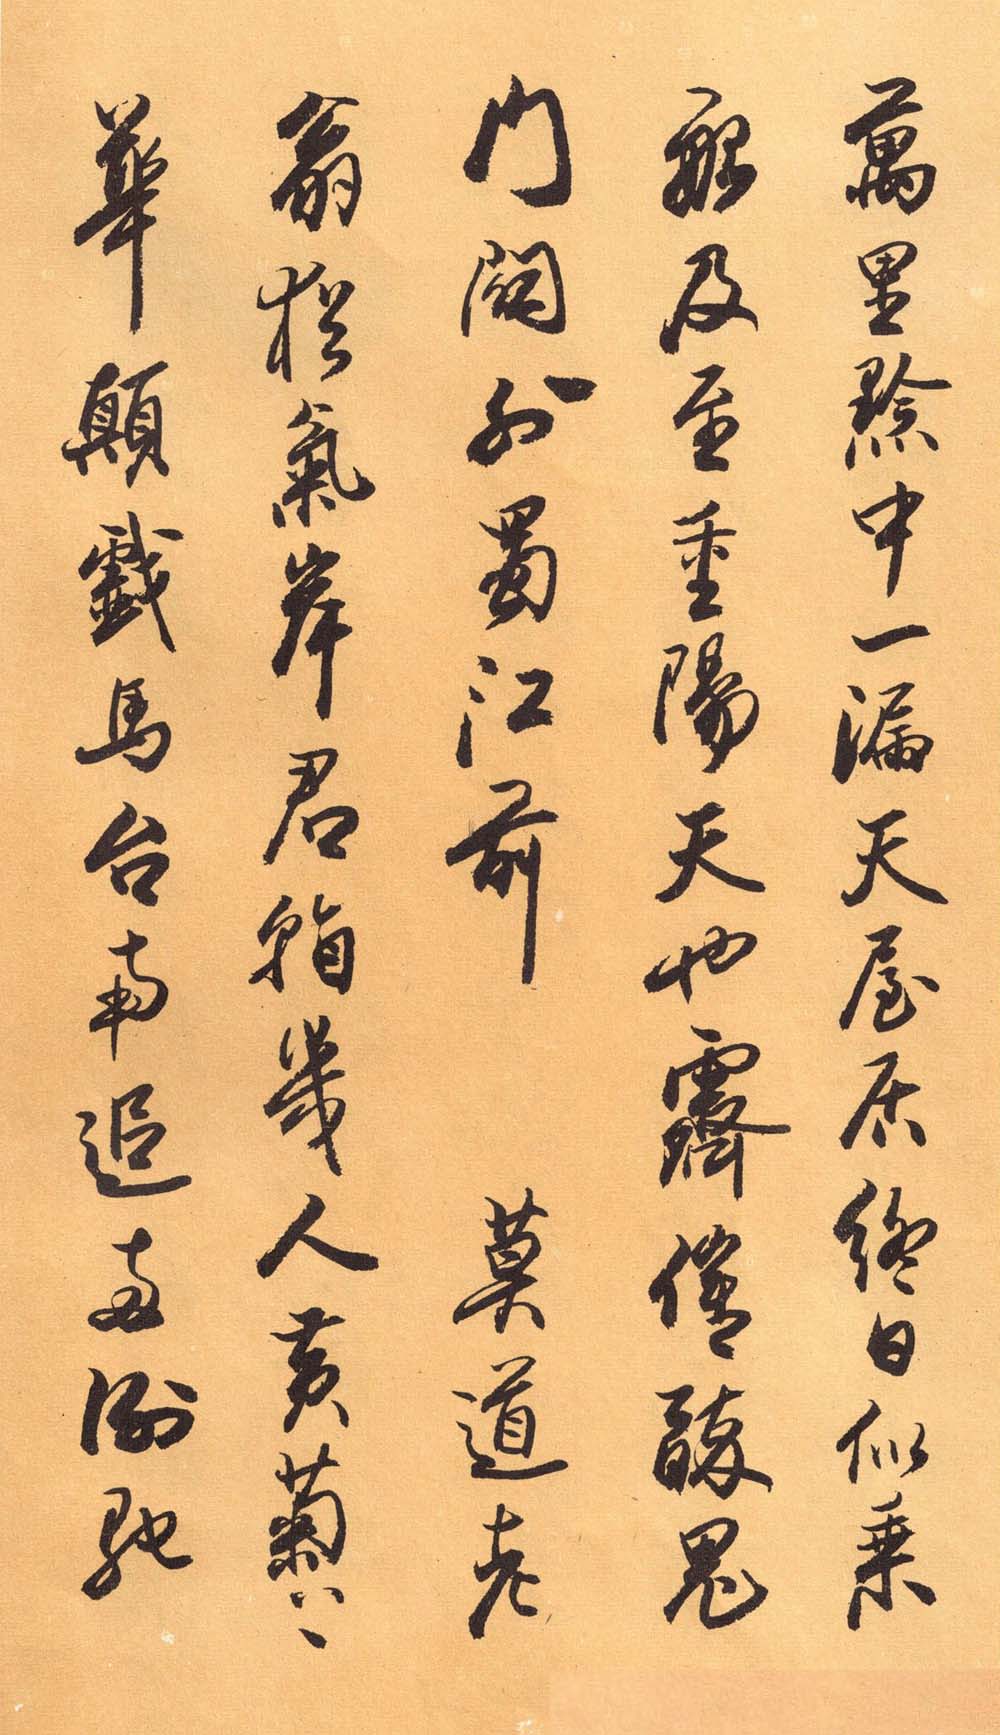 萬里黔中一漏天屋居終日似乗
船及至重陽天也霽催醉鬼
門関外蜀江前　莫道老
翁猶氣岸君看幾人黄菊上
華顛戲馬台南追兩謝馳